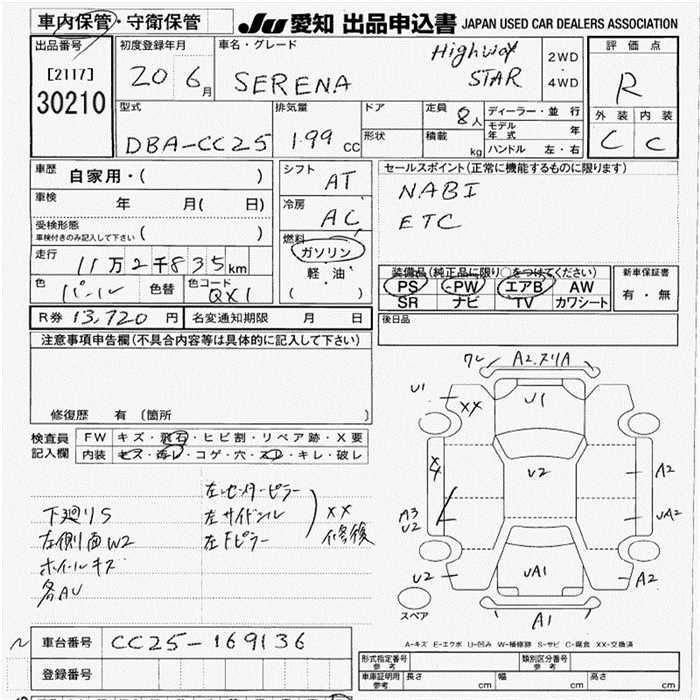 車内保管・守衛保管
JU 愛知 出品申込書 JAPAN USED CAR DEALERS ASSOCIATION
出品番号
[2117]
30210
初度登録年月
20 6月
車名・グレード
SERENA
Highway STAR
2WD
・
4WD
評価点
R
外装 内装
C C
型式
DBA-CC25
排気量
1.99 CC
ドア
形状
定員 8人
積載 kg
ディーラー・並行
モデル年式 年
ハンドル 左・右
車歴 自家用・( )
車検 年 月( 日)
受検形態
車検付きのみ記入して下さい ( )
走行 11万2千835km
色 パール 色替 色コード QX1
シフト AT
冷房 AC
燃料
ガソリン
軽・油
( )
セールスポイント(正常に機能するものに限ります)
NABI
ETC
装備品(純正品に限り○をつけてください)
PS PW エアB AW
SR ナビ TV カワシート
新車保証書
有・無
R券 13,720円 名変通知期限 月 日
後日品
注意事項申告欄(不具合内容等は具体的に記入して下さい)
修復歴 有 (箇所
検査員記入欄
FW キズ・飛石・ヒビ割・リペア跡・X要
内装 キズ・汚レ・コゲ・穴・スレ・キレ・破レ
下廻りS
左側面W2
ホイールキズ
各AU
左センターピラー
左サイドシル
左Fピラー
XX
修復
ワレ A2.ヌリA
U1
XX
U1
U2
X4
A3
U2
A2
UA2
U2
UA1
A2
A1
スペア
A-キズ E-エクボ U-凹み W-補修跡 S-サビ C-腐食 XX-交換済
車台番号 CC25-169136
登録番号
形式指定番号
参考
類別区分番号
参考
車庫証明用
参考
長さ cm 幅 cm 高さ cm